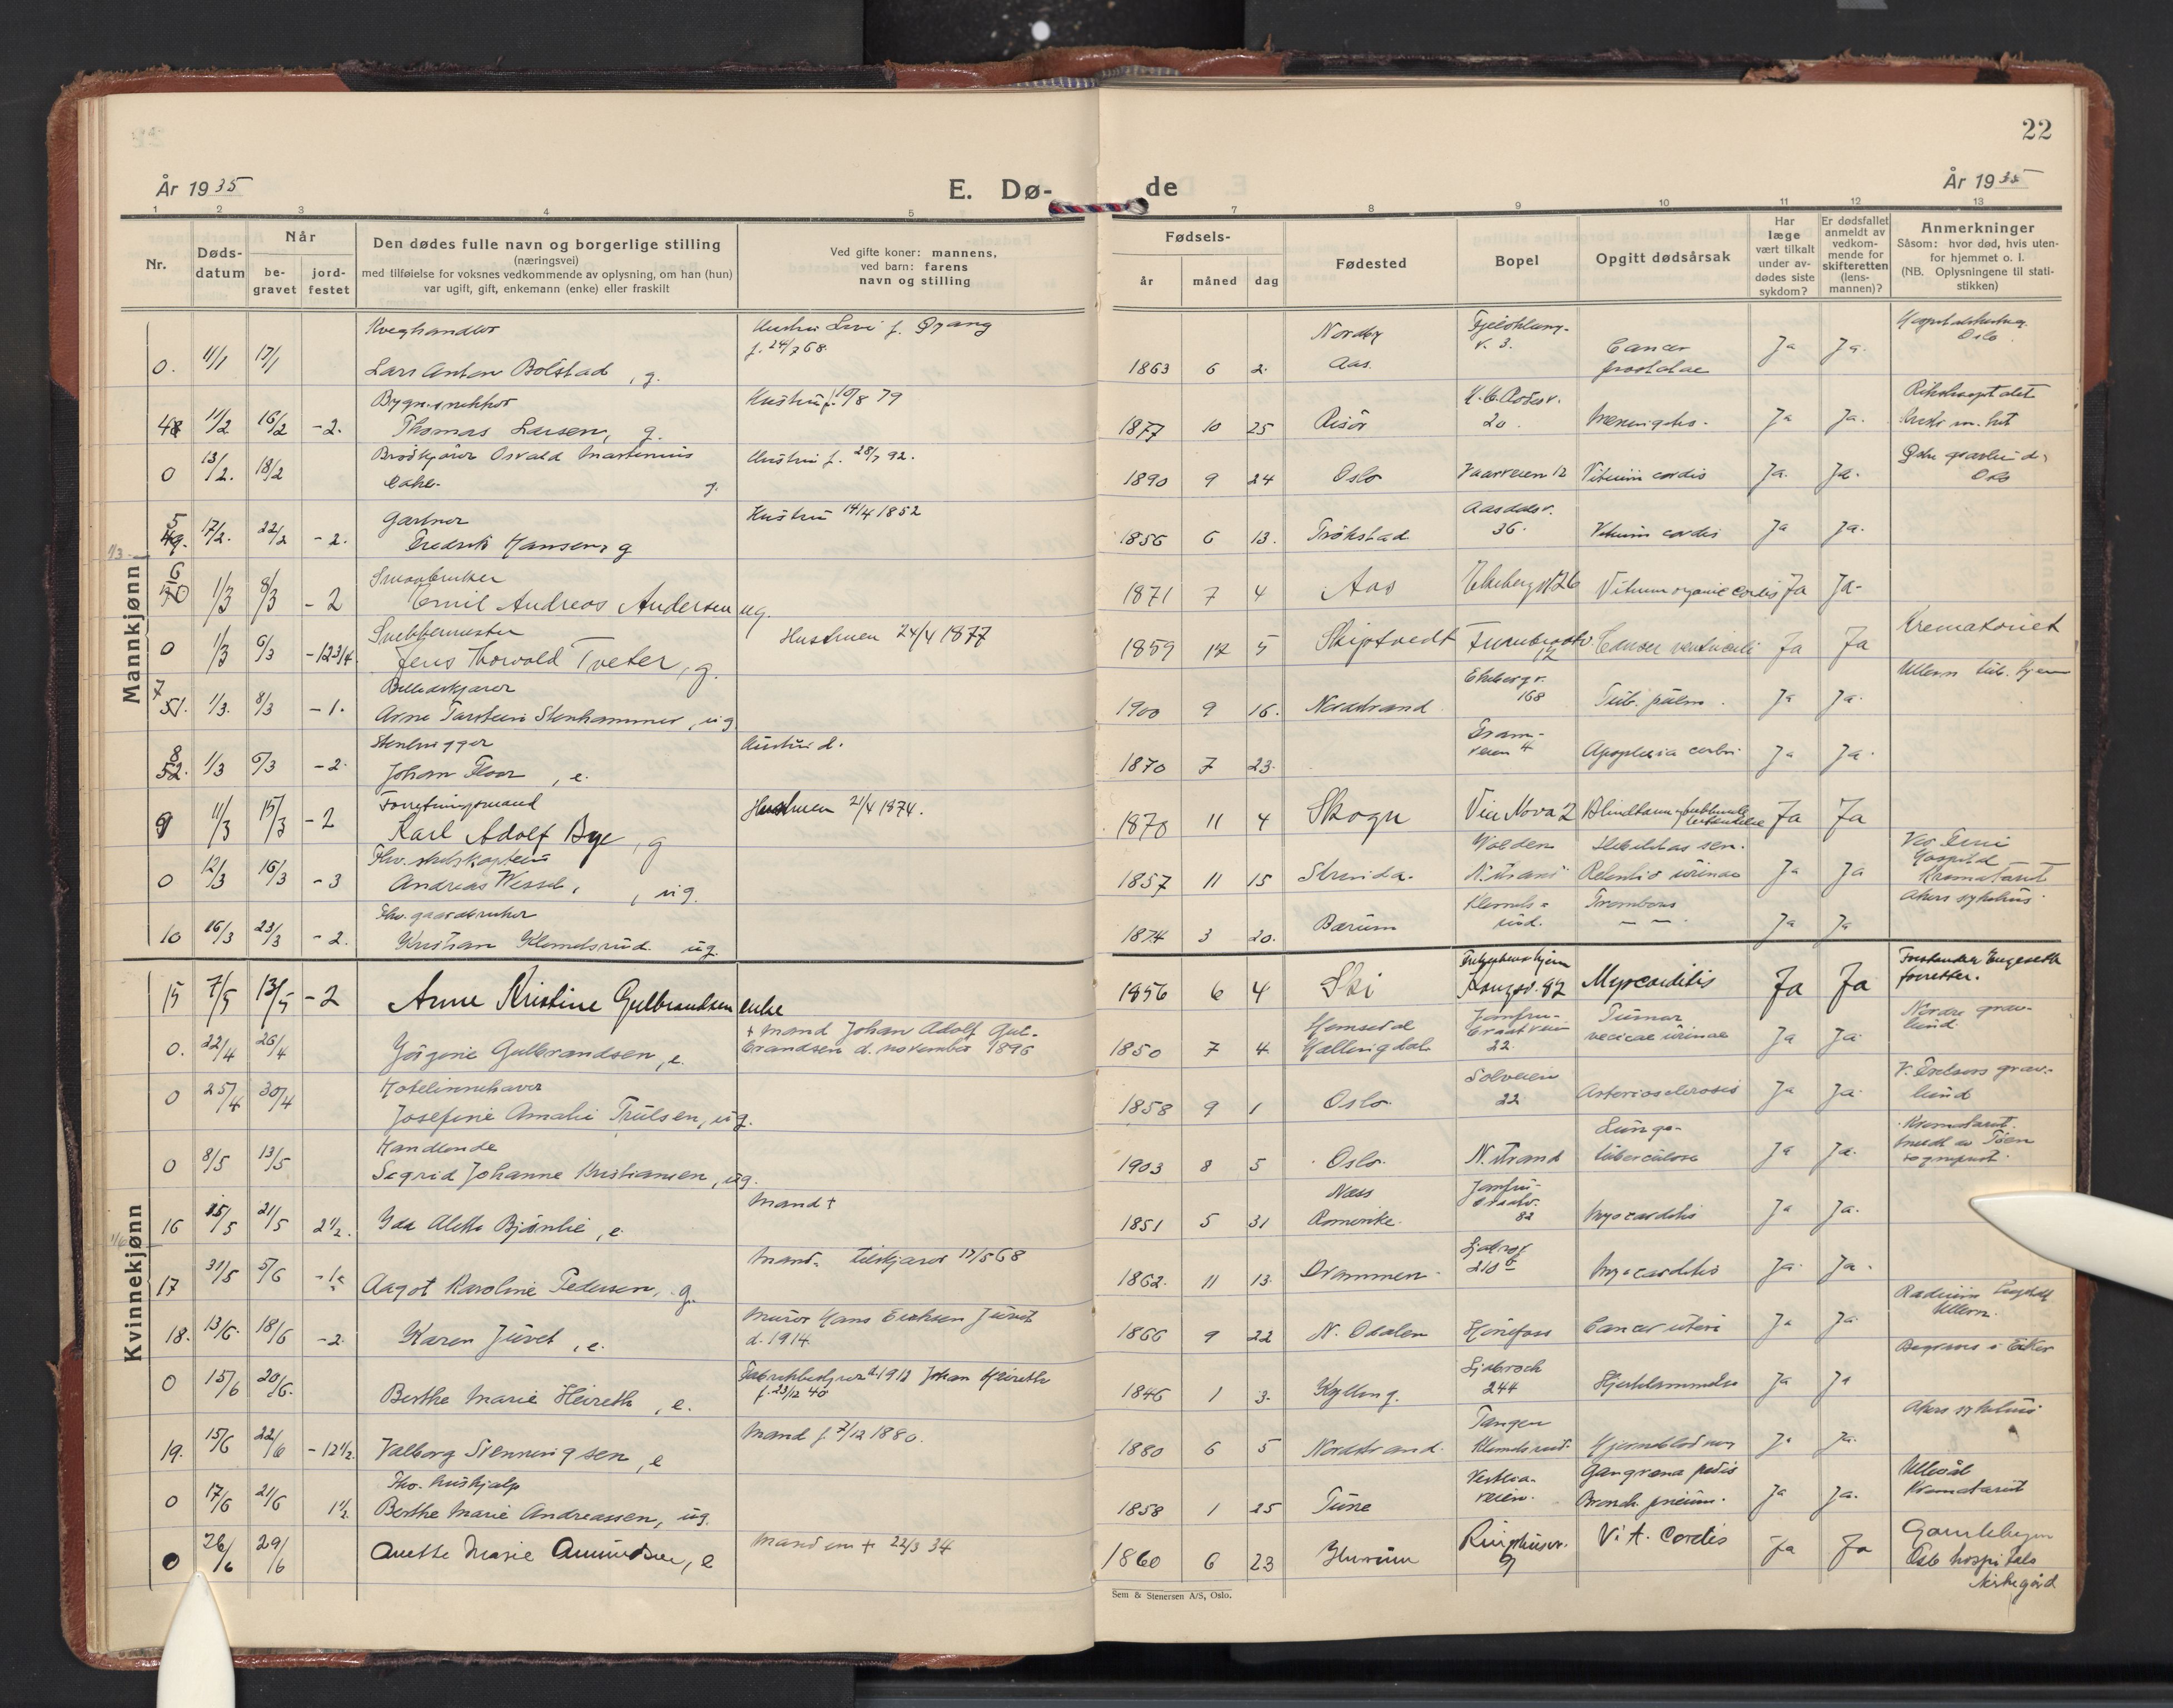 22
År 1935 E. Dø- de År 1935
1 2 3 4 5 7 8 9 10 11 12 13
Nr.
Døds-
datum
Når
be-
gravet
jord-
festet
Den dødes fulle navn og borgerlige stilling
(næringsvei)
med tilføielse for voksnes vedkommende av oplysning, om han (hun)
var ugift, gift, enkemann (enke) eller fraskilt
Ved gifte koner: mannens,
ved barn: farens
navn og stilling
Fødsels-
år måned dag
Fødested
Bopel
Opgitt dødsårsak
Har
læge
vært tilkalt
under av-
dødes siste
sykdom?
Er dødsfallet
anmeldt av
vedkom-
mende for
skifteretten
(lens-
mannen)?
Anmerkninger
Såsom: hvor død, hvis uten-
for hjemmet o. l.
(NB. Oplysningene til stati-
stikken)
Mannkjønn
Kveghandler
0. 11/1 17/1 Lars Anton Bölstad, g. f. 24/7 68. 1863 6 2. Nordby Aas. Cancer prostatae Ja Ja. Oslo
11/2 16/2 -2. Thomas Larsen, g. 10/8 79 1877 10 25 Risör 20. Ja Ja.
0 13/2. 18/2 Osvald Martinius g. Hustru f. 28/7 92. 1890 9 24 Oslo Vaarveien 12 Vitium cordis Ja. Ja. Oslo
Gartner
5 17/2. 22/2 -2. Fredrik Hansen, g Hustru 14/4 1852 1856 6 13. Trökstad 36. Vitium cordis Ja Ja.
Smaabruker
6 1/3 8/3 -2 Emil Andreas Andersen ug. 1871 7 4 Aas Ekebergv 26 Vitium organic cordis Ja Ja-
Snekkermester
0 1/3 6/3 -12 3/4 Jens Thorvald Tveter, g. Hustruen 24/4 1877 1859 12 5 Skiptvedt 12 Cancer ventriculi Ja Ja Krematoriet
Billedskjærer
7 51. 1/3. 8/3 -1. Arne Tarstein Stenhammer, ug 1900 9 16. Nordstrand Ekebergv. 168 Tub. pulm. Ja Ja. Ullern tub. hjem
8 52. 1/3 6/3 -2. Johan Floor, e. Hustru d. 1870 7 23. veien 4 Apoplexia cerebri Ja Ja.
Forretningsmand
9 11/3 15/3 -2 Karl Adolf Bye, g Hustruen 21/4 1874. 1870 11 4 Skogn Via Nova 2 Ja Ja
Fhv. skibskaptein
0 12/3 16/3 -3 Andreas Wessel, ug. 1857 11 15 Strinda. N.strand Retentio urinae Ja Ja Hospital
Fhv. gaardbruker
10 16/3 23/3 -2. Kristian Klemetsrud. ug. 1874 3 20. Bærum Klemets-
rud. Trombose Ja Ja Akers sykehus.
Kvinnekjønn
15 7/5 13/5 -2 Anne Kristine Gulbrandsen enke 1856 6 4 Ski Kongsv. 82 Myocarditis Ja Ja Forstander Engeseth forretter.
0. 22/4 26/4 Jörgine Gulbrandsen, e. + mand Johan Adolf Gul-
brandsen d. november 1896 1850 7 4 Hemsedal
Hallingdal 22. Tumor
vesicae urinae Ja Ja. Nordre grav-
lund.
Hotelinnehaver
0 25/4 30/4 Josefine Amalie Trulsen, ug. 1858 9 1 Oslo. Solveien
22 Arteriosclerosis Ja Ja. V. Frelsers grav-
lund
Handlende
0 8/5 13/5 Sigrid Johanne Kristiansen, ug. 1903 8 5 Oslo. N. strand Lunge-
tuberculose Ja Ja.
16 15/5 21/5 2 1/2. Ida Alette Bjönlie, e. Mand + 1851 5 31 Næs
Romerike. 82 Myocarditis Ja Ja.
17 31/5 5/6 Aagot Karoline Pedersen, g. Mand. 17/5 68 1862. 11 13. Drammen. 210 Myocarditis Ja. Ja.
18. 13/6. 18/6 -2. Karen Juvet, e. Murer Hans Eriksen Juvet
d. 1914. 1866 9 22 N. Odalen Hönefoss Cancer uteri Ja Ja. Radium
Ullern.
0 15/6 20/6. Berthe Marie Heireth, e. d. 1912 Johan Heireth
f. 23/12 40 1846 1 3. 244 Ja Ja Begraves i Eiker
19. 15/6 22/6 -12 1/2. Valborg Svenningsen, e Mand f. 7/12 1880. 1880 6 5 Nordstrand. Tangen
Klemetsrud. Ja Ja. Akers sykehus
Fhv. hushjælp
0 17/6 21/6 1 1/2 Berthe Marie Andreassen, ug. 1858 1 25 Tune veien. Gangræna pedis
Bronch. pneum. Ja Ja. Ullevål
Krematoriet
0 26/6 29/6 Anette Marie Amundsen, e Mand em + 22/3 34 1860 6 23 Hurum 9 Vit. Cordis Ja Ja Gamlebyen
Oslo hospitals
kirkegård
Sem & Stenersen A/S, Oslo.